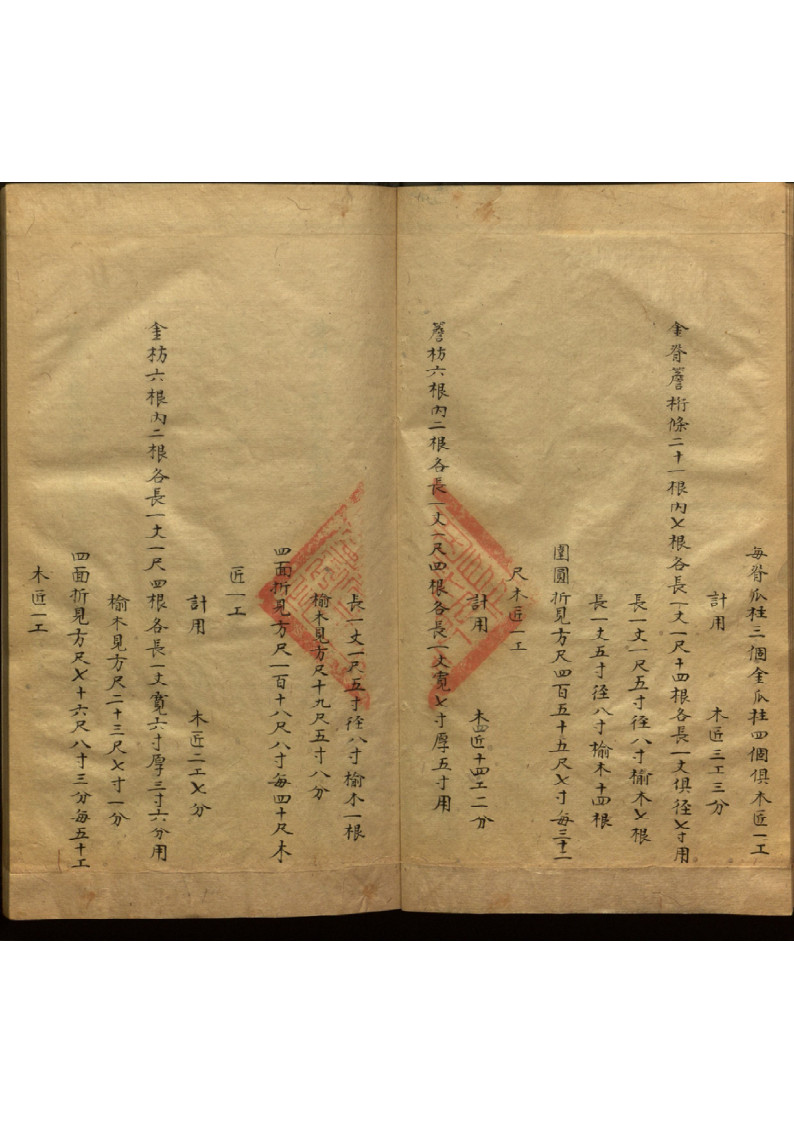 每脊瓜柱三個金瓜柱四個俱木匠一工
計用
木匠三工三分
金脊簷桁條二十一根內七根各長一丈一尺十四根各長一丈俱徑七寸用
長一丈一尺五寸徑八寸榆木七根
長一丈五寸徑八寸榆木十四根
圍圓折見方尺四百五十五尺七寸每三十二
尺木匠一工
計用
木匠十四工二分
簷枋六根內二根各長一丈一尺四根各長一丈寬七寸厚五寸用
長一丈一尺五寸徑八寸榆木一根
榆木見方尺十九尺五寸八分
四面折見方尺一百十八尺八寸每四十尺木
匠一工
計用
木匠二工七分
金枋六根內二根各長一丈一尺四根各長一丈寬六寸厚三寸六分用
榆木見方尺二十三尺七寸一分
四面折見方尺七十六尺八寸三分每五十工
木匠一工